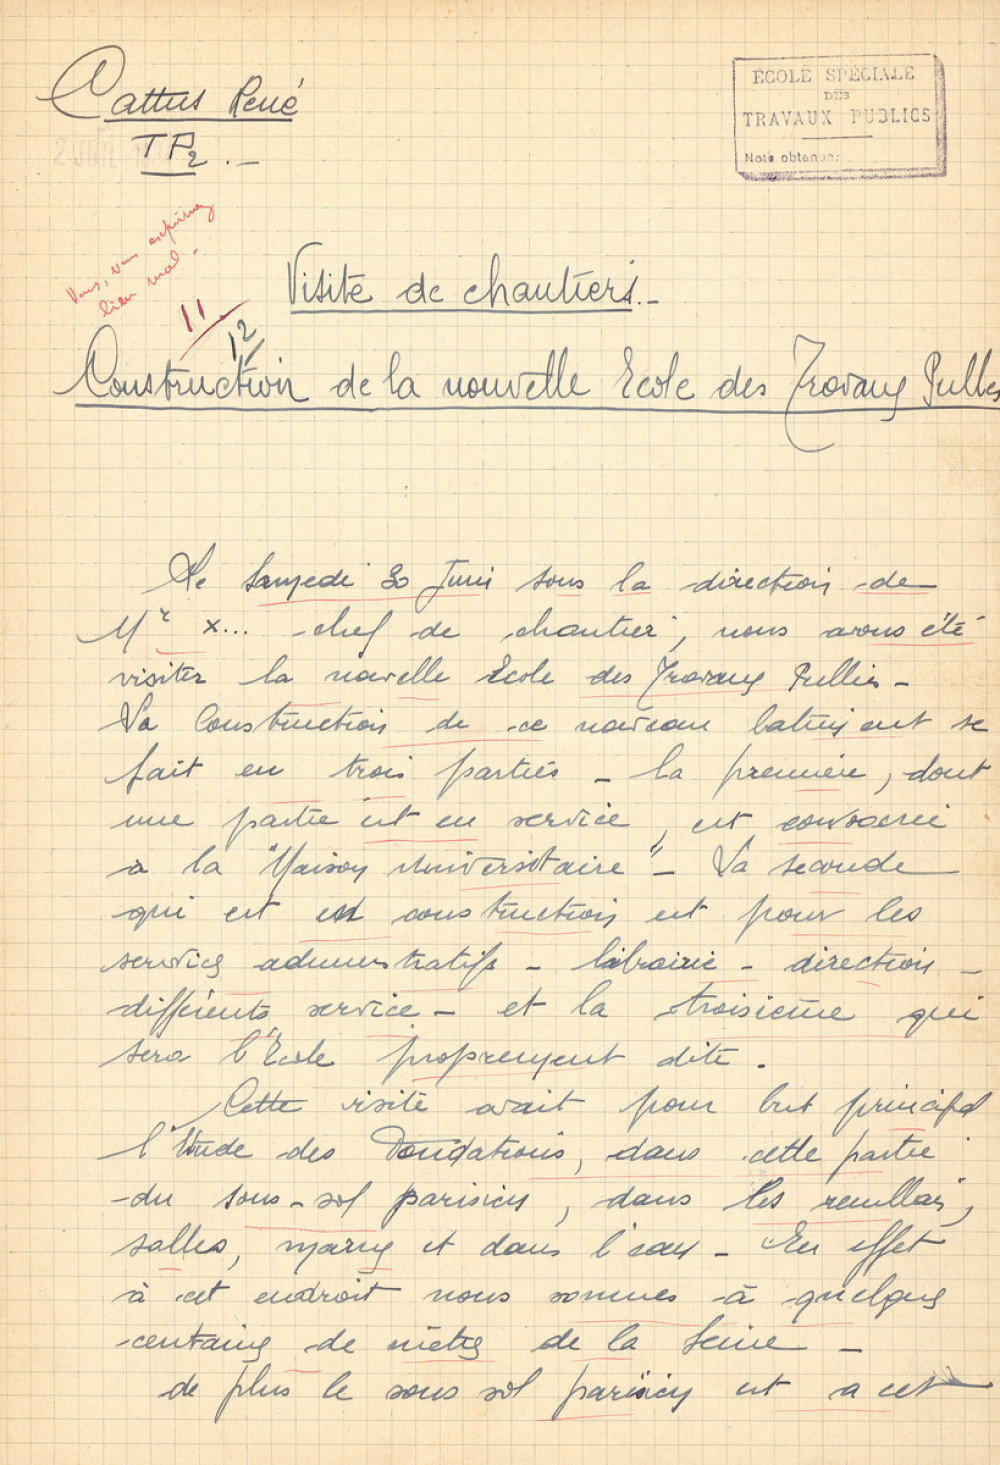 Cattus René
TP2.–
ÉCOLE SPÉCIALE
DES
TRAVAUX PUBLICS
Note obtenue:
Vous, vous exprimez
bien mal –
11
12
Visite de chantiers.–
Construction de la nouvelle Ecole des Travaux Publics
Le Samedi 30 Juin sous la direction de
Mr X... chef de chantier, nous avons été
visiter la nouvelle Ecole des Travaux Publics –
La Construction de ce nouveau batiment se
fait en trois parties – la première, dont
une partie est en service, est consacrée
a la "Maison Universitaire" – La seconde
qui est en construction est pour les
services administratifs – librairie – direction –
différents service – et la troisième qui
sera l'Ecole proprement dite.
Cette visite avait pour but principal
l'Etude des Fondations, dans cette partie
du sous-sol parisien, dans les remblais,
salles, marnes et dans l'eau – En effet
à cet endroit nous sommes à quelques
centaines de mètres de la Seine –
de plus le sous sol parisien est a cet